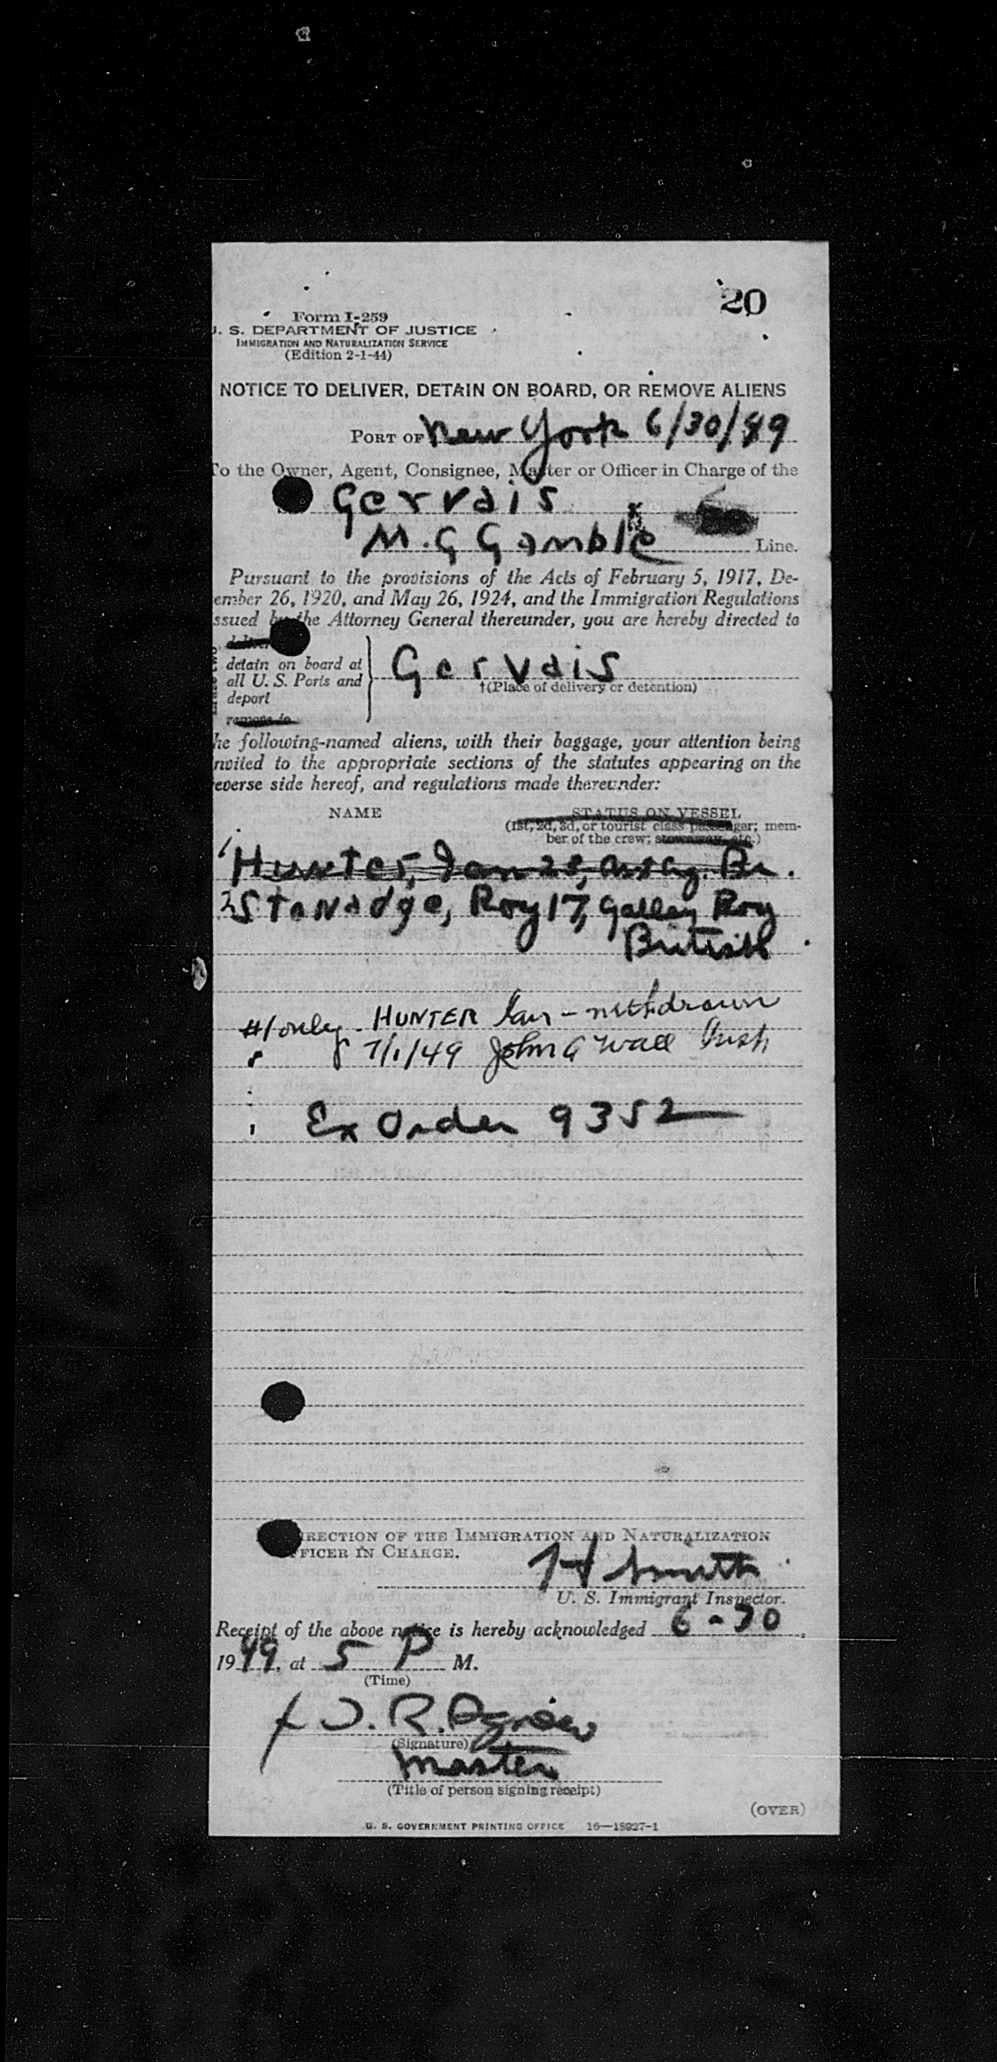 20
Form I-259
U. S. DEPARTMENT OF JUSTICE
IMMIGRATION AND NATURALIZATION SERVICE
(Edition 2-1-44)
NOTICE TO DELIVER, DETAIN ON BOARD, OR REMOVE ALIENS
PORT OF New York 6/30/49
To the Owner, Agent, Consignee, Master or Officer in Charge of the
Gervais
M. G Gamble Line.
Pursuant to the provisions of the Acts of February 5, 1917, De-
cember 26, 1920, and May 26, 1924, and the Immigration Regulations
issued by the Attorney General thereunder, you are hereby directed to
deliver
detain on board at
all U. S. Ports and
deport
remove to
Gervais
†(Place of delivery or detention)
the following-named aliens, with their baggage, your attention being
invited to the appropriate sections of the statutes appearing on the
reverse side hereof, and regulations made thereunder:
NAME STATUS ON VESSEL
(1st, 2d, 3d, or tourist class passenger; mem-
ber of the crew; stowaway, etc.)
1 Hunter, Ian 28, Br.
2 Stanadge, Roy 17, Galley Boy
British
#1 only. HUNTER Ian - withdrawn
7/1/49 John G Wall Insp
Ex Order 9352
DIRECTION OF THE IMMIGRATION AND NATURALIZATION
OFFICER IN CHARGE.
H Smith
U. S. Immigrant Inspector.
Receipt of the above notice is hereby acknowledged 6-30,
1949, at 5 P M.
(Time)
(Signature)
Master
(Title of person signing receipt)
(OVER)
U. S. GOVERNMENT PRINTING OFFICE 16—18927-1